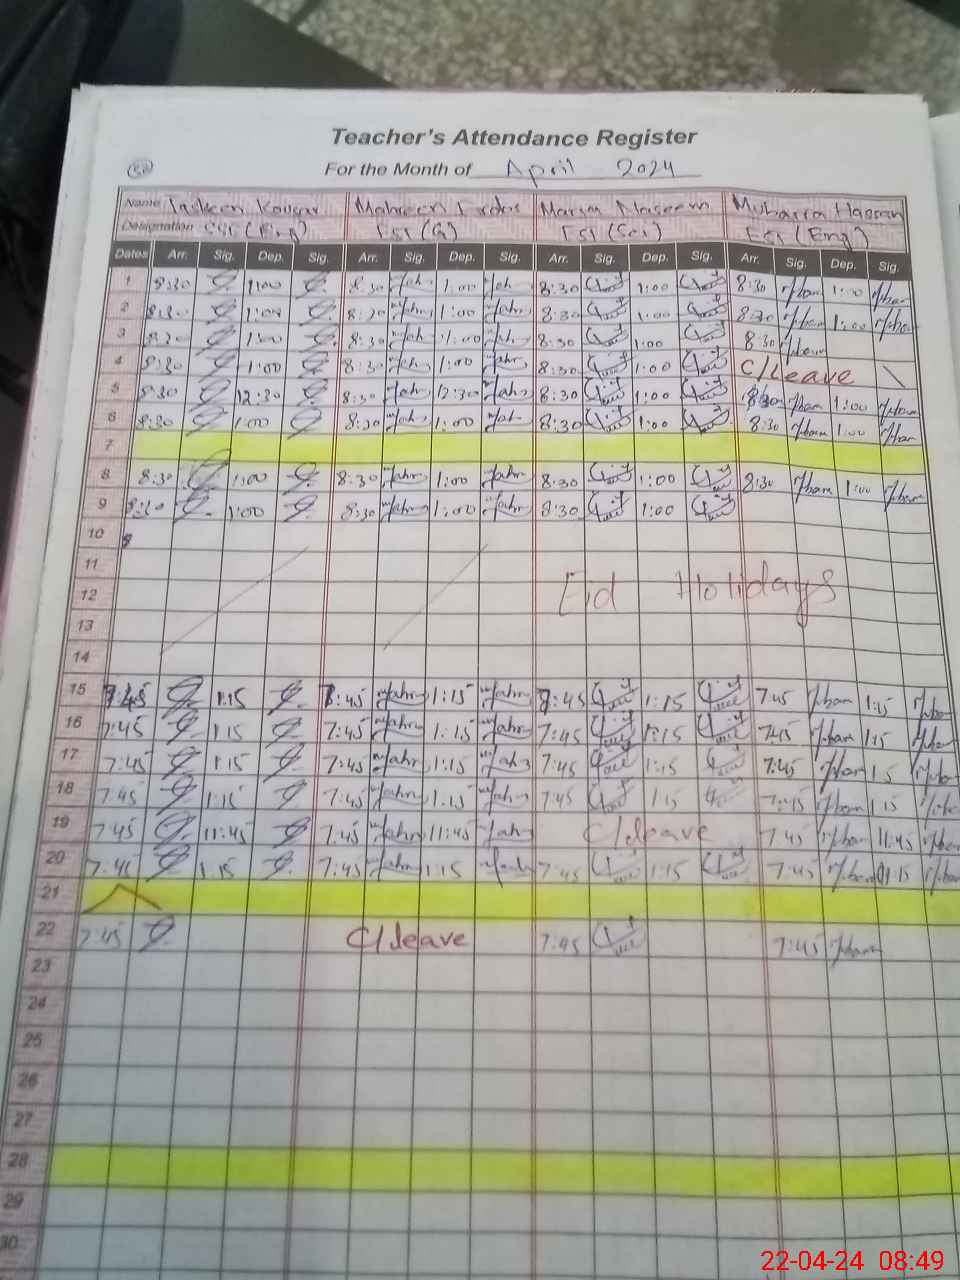 Teacher's Attendance Register
For the Month of April 2024
Name Mahreen Maryam Naseem Mubarra Hassan
Designation EST (Eng) EST (G) EST (Sci) EST (Eng)
Dates Arr. Sig. Dep. Sig. Arr. Sig. Dep. Sig. Arr. Sig. Dep. Sig. Arr. Sig. Dep. Sig.
1 8:30 1:00 8:30 1:00 8:30 1:00 8:30 1:00
2 8:30 1:00 8:30 1:00 8:30 1:00 8:30 1:00
3 8:30 1:00 8:30 1:00 8:30 1:00 8:30
4 8:30 1:00 8:30 1:00 8:30 1:00 C/Leave
5 8:30 12:30 8:30 12:30 8:30 1:00 8:30 1:00
6 8:30 1:00 8:30 1:00 8:30 1:00 8:30 1:00
7
8 8:30 1:00 8:30 1:00 8:30 1:00 8:30 1:00
9 8:30 1:00 8:30 1:00 8:30 1:00
10
11
12 Eid Holidays
13
14
15 7:45 1:15 7:45 1:15 7:45 1:15 7:45 1:15
16 7:45 1:15 7:45 1:15 7:45 1:15 7:45 1:15
17 7:45 1:15 7:45 1:15 7:45 1:15 7:45 1:15
18 7:45 1:15 7:45 1:15 7:45 1:15 7:45 1:15
19 7:45 11:45 7:45 11:45 C/leave 7:45 11:45
20 7:45 1:15 7:45 1:15 7:45 1:15 7:45 1:15
21
22 7:45 C/leave 7:45 7:45
23
24
25
26
27
28
29
30
22-04-24 08:49